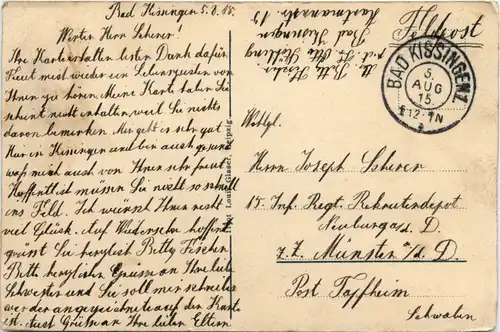 Bad Kissingen 5.8.15.
Werter Herr Scherer!
Ihre Karte erhalten besten Dank dafür
Freut mich wieder ein Lebenszeichen von
Ihnen zu hören. Meine Karte haben Sie
scheint nicht erhalten, weil Sie nichts
davon bemerken. Mir geht es sehr gut
Hier in Kissingen und bin auch gesund
was mich auch von Ihnen sehr freut
Hoffentlich müssen Sie nicht so schnell
ins Feld. Ich wünsch Ihnen recht
viel Glück. Auf Wiedersehn hoffend
grüsst Sie herzlich Betty Fischer
Bitte herzliche Grüsse an Ihre liebe
Schwester und Sie soll mir schreiben
wer der angezeichnete auf der Karte
ist. Auch Grüsse an Ihre lieben Eltern
Louis Glaser, Leipzig
Bad Kissingen
Hartmannstr. 13
Feldpost
BAD KISSINGEN 1
5.
AUG
15.
12-1N
Wohlgl.
Herrn Joseph Scherer
15. Inf. Regt. Rekrutendepot
Neuburg a/d. D.
z. Z. Münster a/d. D.
Post Tapfheim
Schwaben